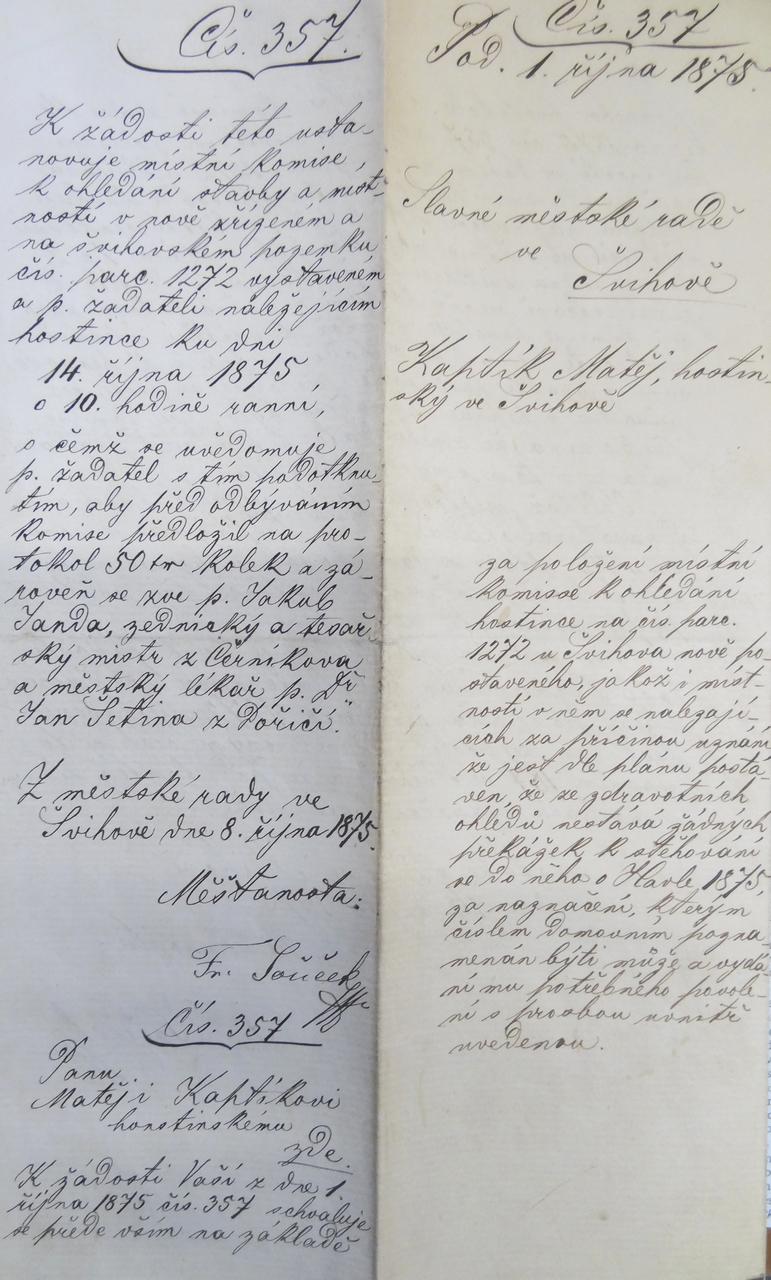 Čís. 357.
K žádosti této usta-
novuje místní komise,
k ohledání stavby a míst-
ností v nově zřízeném a
na švihovském pozemku
čís. parc. 1272 vystaveném
a p. žadateli náležejícím
hostince ku dni
14. října 1875
o 10. hodině ranní,
o čemž se uvědomuje
p. žadatel s tím podotknu-
tím, aby před odbýváním
komise předložil na pro-
tokol 50 kr kolek a zá-
roveň se zve p. Jakub
Janda, zednický a tesař-
ský mistr z Černíkova
a městský lékař p. Dr
Jan Šetina z Poříčí."
Z městské rady ve
Švihově dne 8. října 1875.
Měšťanosta:
Fr. Souček
Čís. 357
Panu
Matěji Kaptíkovi
honstinskému
zde.
K žádosti Vaší z dne 1.
října 1875 čís. 357 schvaluje
se přede vším na základě
Čís. 357
Pod. 1. října 1875.
Slavné městské radě
ve
Švihově
Kaptík Matěj, hostin-
ský ve Švihově
za položení místní
komisse k ohledání
hostince na čís. parc.
1272 u Švihova nově po-
staveného, jakož i míst-
ností v něm se nalezají-
cích za příčinou uznání
že jest dle plánu postá-
ven, že ze zdravotních
ohledů nestává žádných
překážek k stěhování
se do něho o Havle 1875,
za naznačení, kterým
číslem domovním pozna-
menán býti může a vydá-
ní mu potřebného povole-
ní s prosbou uvnitř
uvedenou.